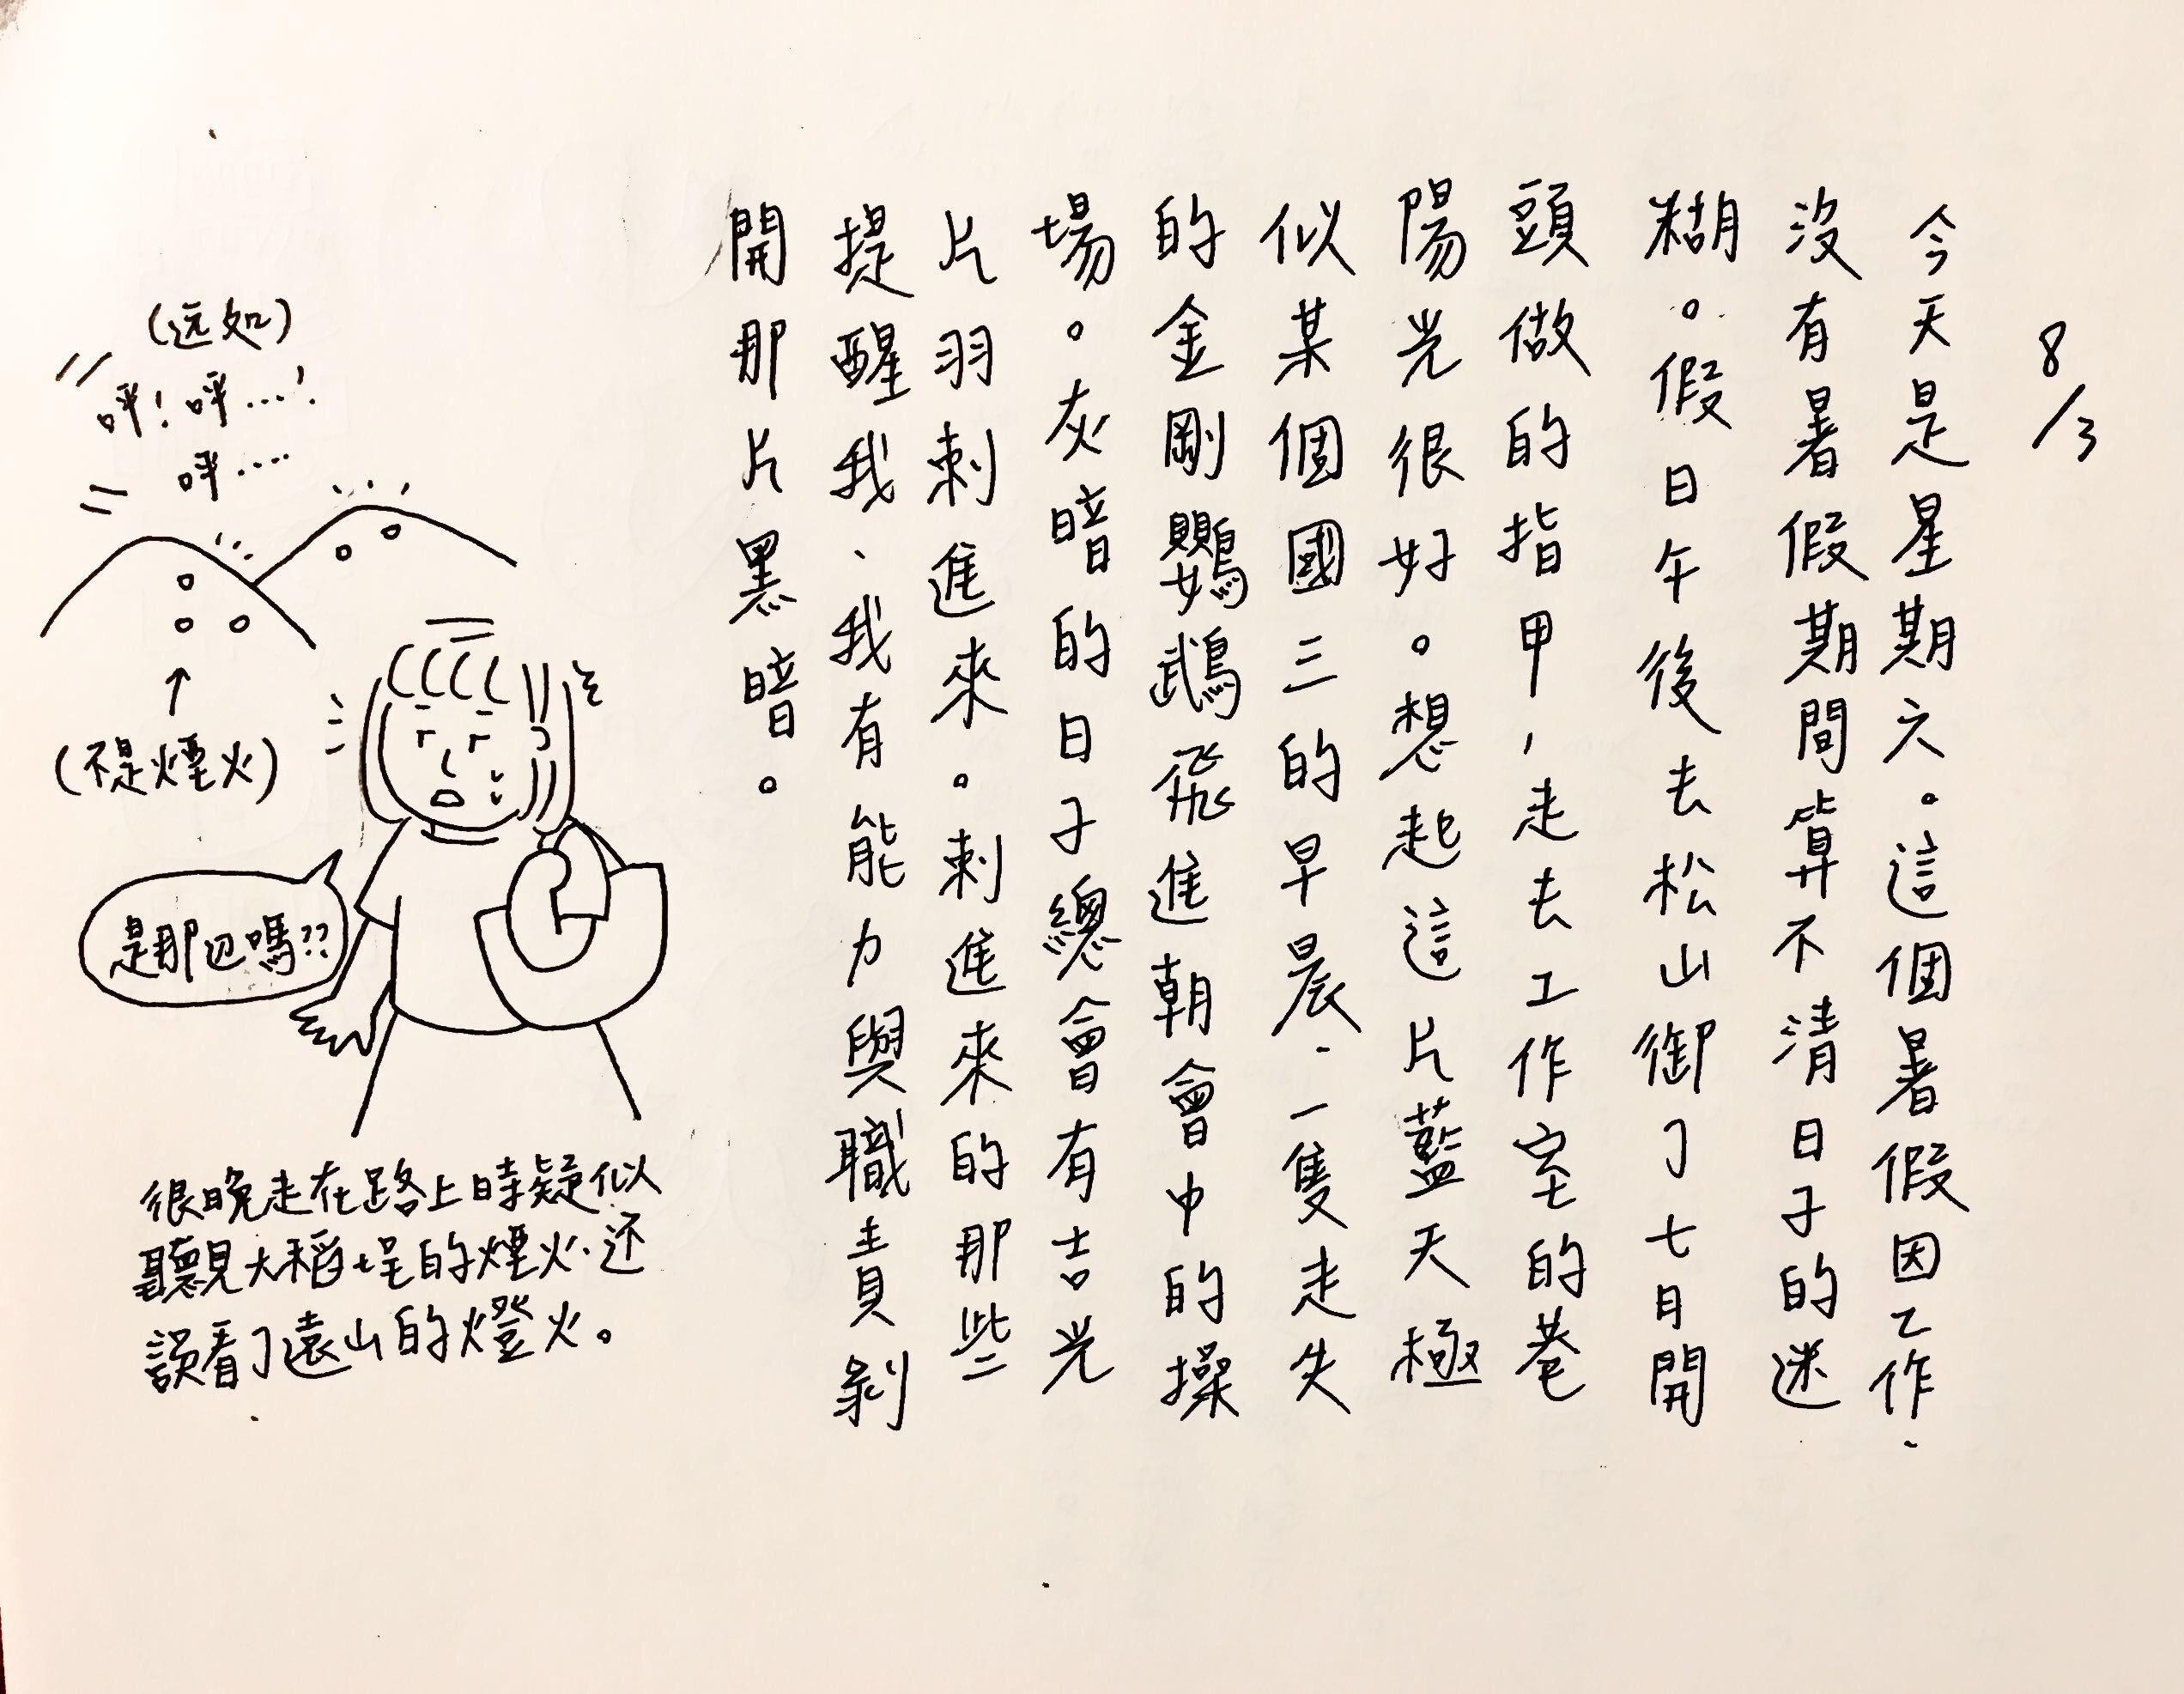 8/3
今天是星期六。這個暑假因工作、
沒有暑假期間算不清日子的迷
糊。假日午後去松山御了七月開
頭做的指甲，走去工作室的巷
陽光很好。想起這片藍天極
似某個國三的早晨、一隻走失
的金剛鸚鵡飛進朝會中的操
場。灰暗的日子總會有吉光
片羽刺進來。刺進來的那些
提醒我、我有能力與職責剝
開那片黑暗。
(远如)
呯！呯...！
呯....
(不是煙火)
是那边嗎??
很晚走在路上時疑似
聽見大稻埕的煙火、还
誤看了遠山的燈火。